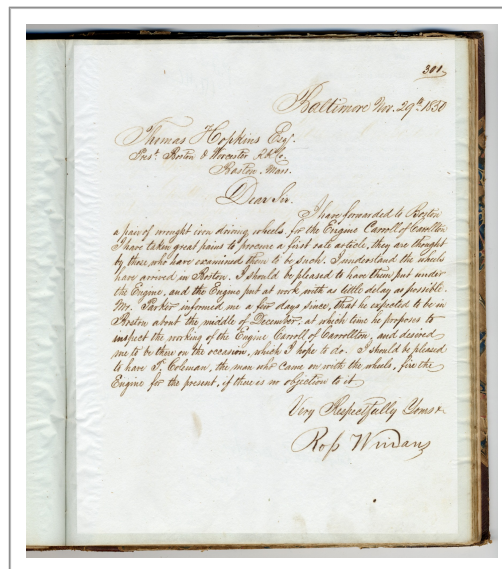 301
Baltimore Nov. 29th 1850
Thomas Hopkins Esq.
Prest. Boston & Worcester R.R. Co.
Boston, Mass.
Dear Sir.
I have forwarded to Boston
a pair of wrought iron driving wheels, for the Engine Carroll of Carrollton
I have taken great pains to procure a first rate article, they are thought
by those who have examined them to be such. I understand the wheels
have arrived in Boston. I should be pleased to have them put under
the Engine, and the Engine put at work with as little delay as possible.
Mr. Parker informed me a few days since, that he expected to be in
Boston about the middle of December, at which time he proposes to
inspect the working of the Engine Carroll of Carrollton, and desired
me to be there on the occasion, which I hope to do. I should be pleased
to have J. Coleman, the man who came on with the wheels, fire the
Engine for the present, if there is no objection to it
Very Respectfully Yours &
Ross Winans